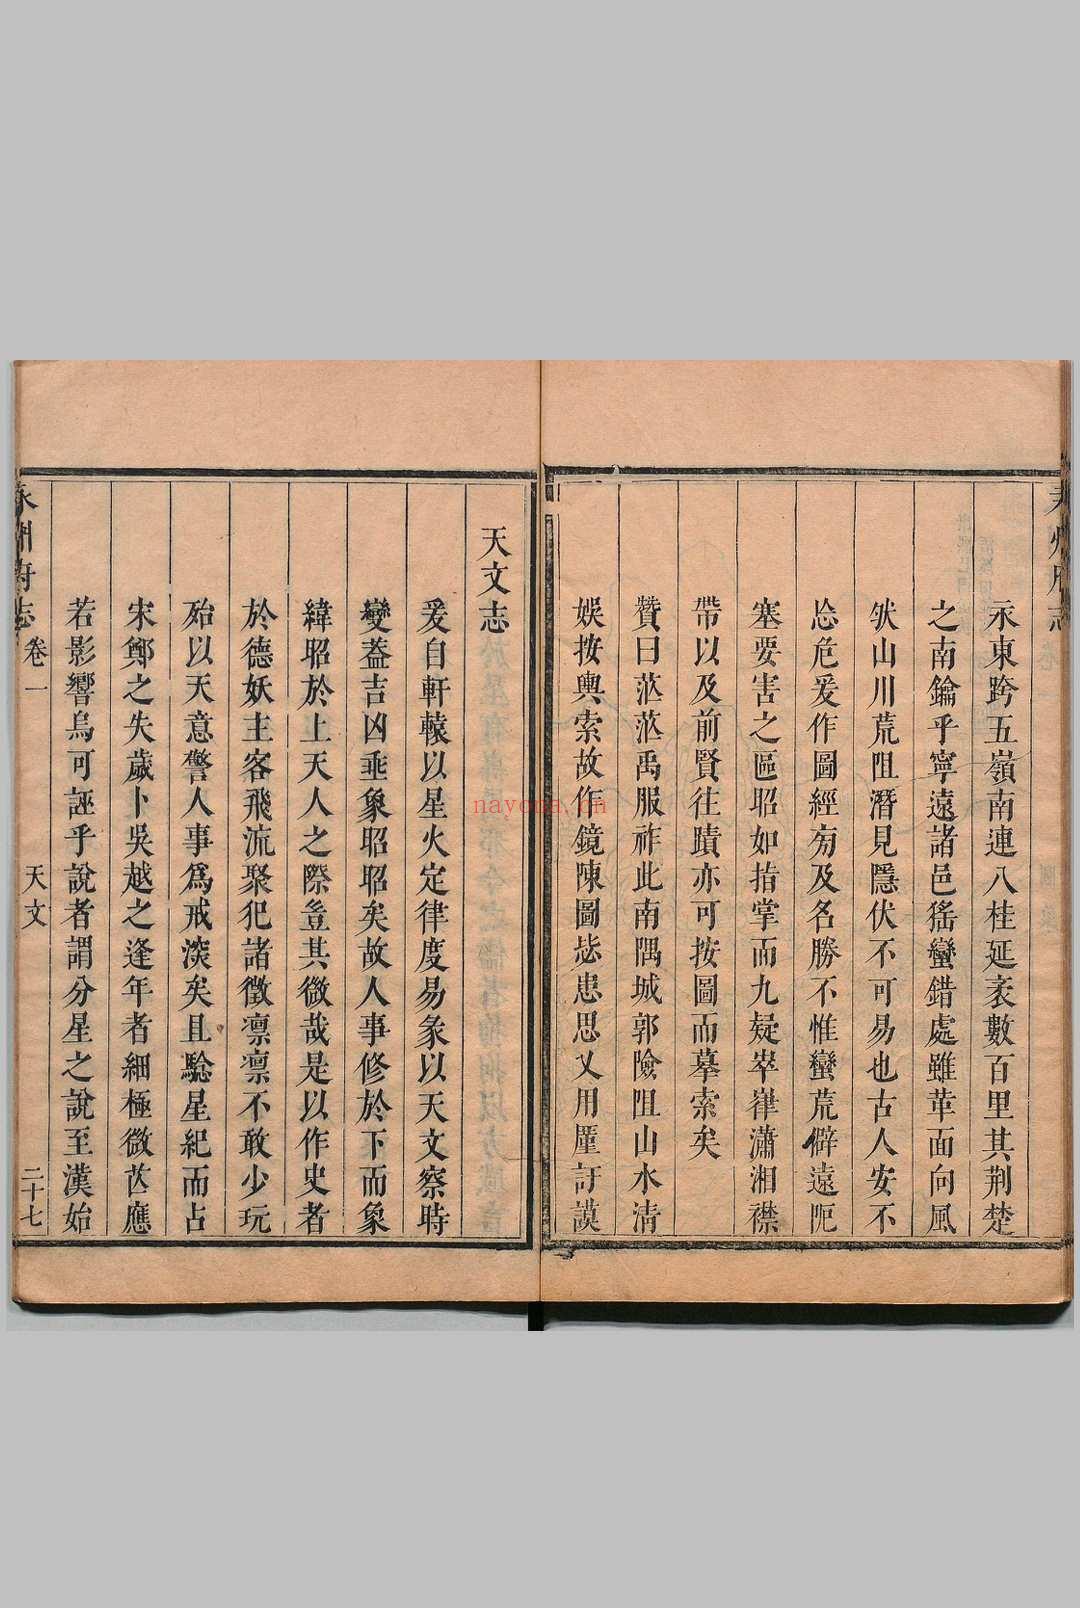 永東跨五嶺南連八桂延袤數百里其荆楚
之南鑰乎寧遠諸邑猺蠻錯處雖革面向風
狀山川荒阻潛見隱伏不可易也古人安不
忘危爰作圖經匃及名勝不惟蠻荒僻遠阨
塞要害之區昭如指掌而九疑崒嵂瀟湘襟
帶以及前賢往蹟亦可按圖而摹索矣
贊曰茫茫禹服祚此南隅城郭險阻山水清
娛按輿索故作鏡陳圖毖患思乂用厪訏謨
天文志
爰自軒轅以星火定律度易象以天文察時
變葢吉凶垂象昭昭矣故人事修於下而象
緯昭於上天人之際豈其微哉是以作史者
於德妖主客飛流聚犯諸徵凛凛不敢少玩
殆以天意警人事爲戒深矣且騐星紀而占
宋鄭之失歲卜吳越之逢年者細極微芒應
若影響烏可誣乎說者謂分星之說至漢始
永州府志 卷一 天文 二十七
nayona.cn